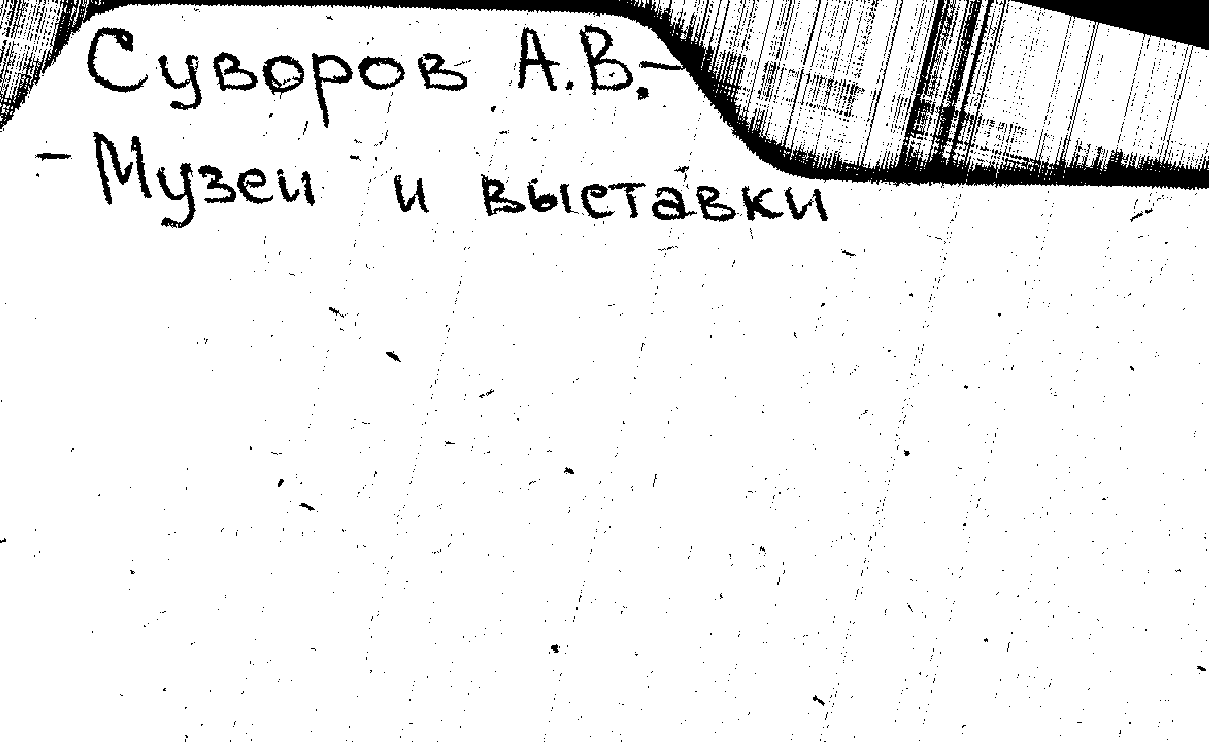 Суворов А.В.-
- Музеи и выставки